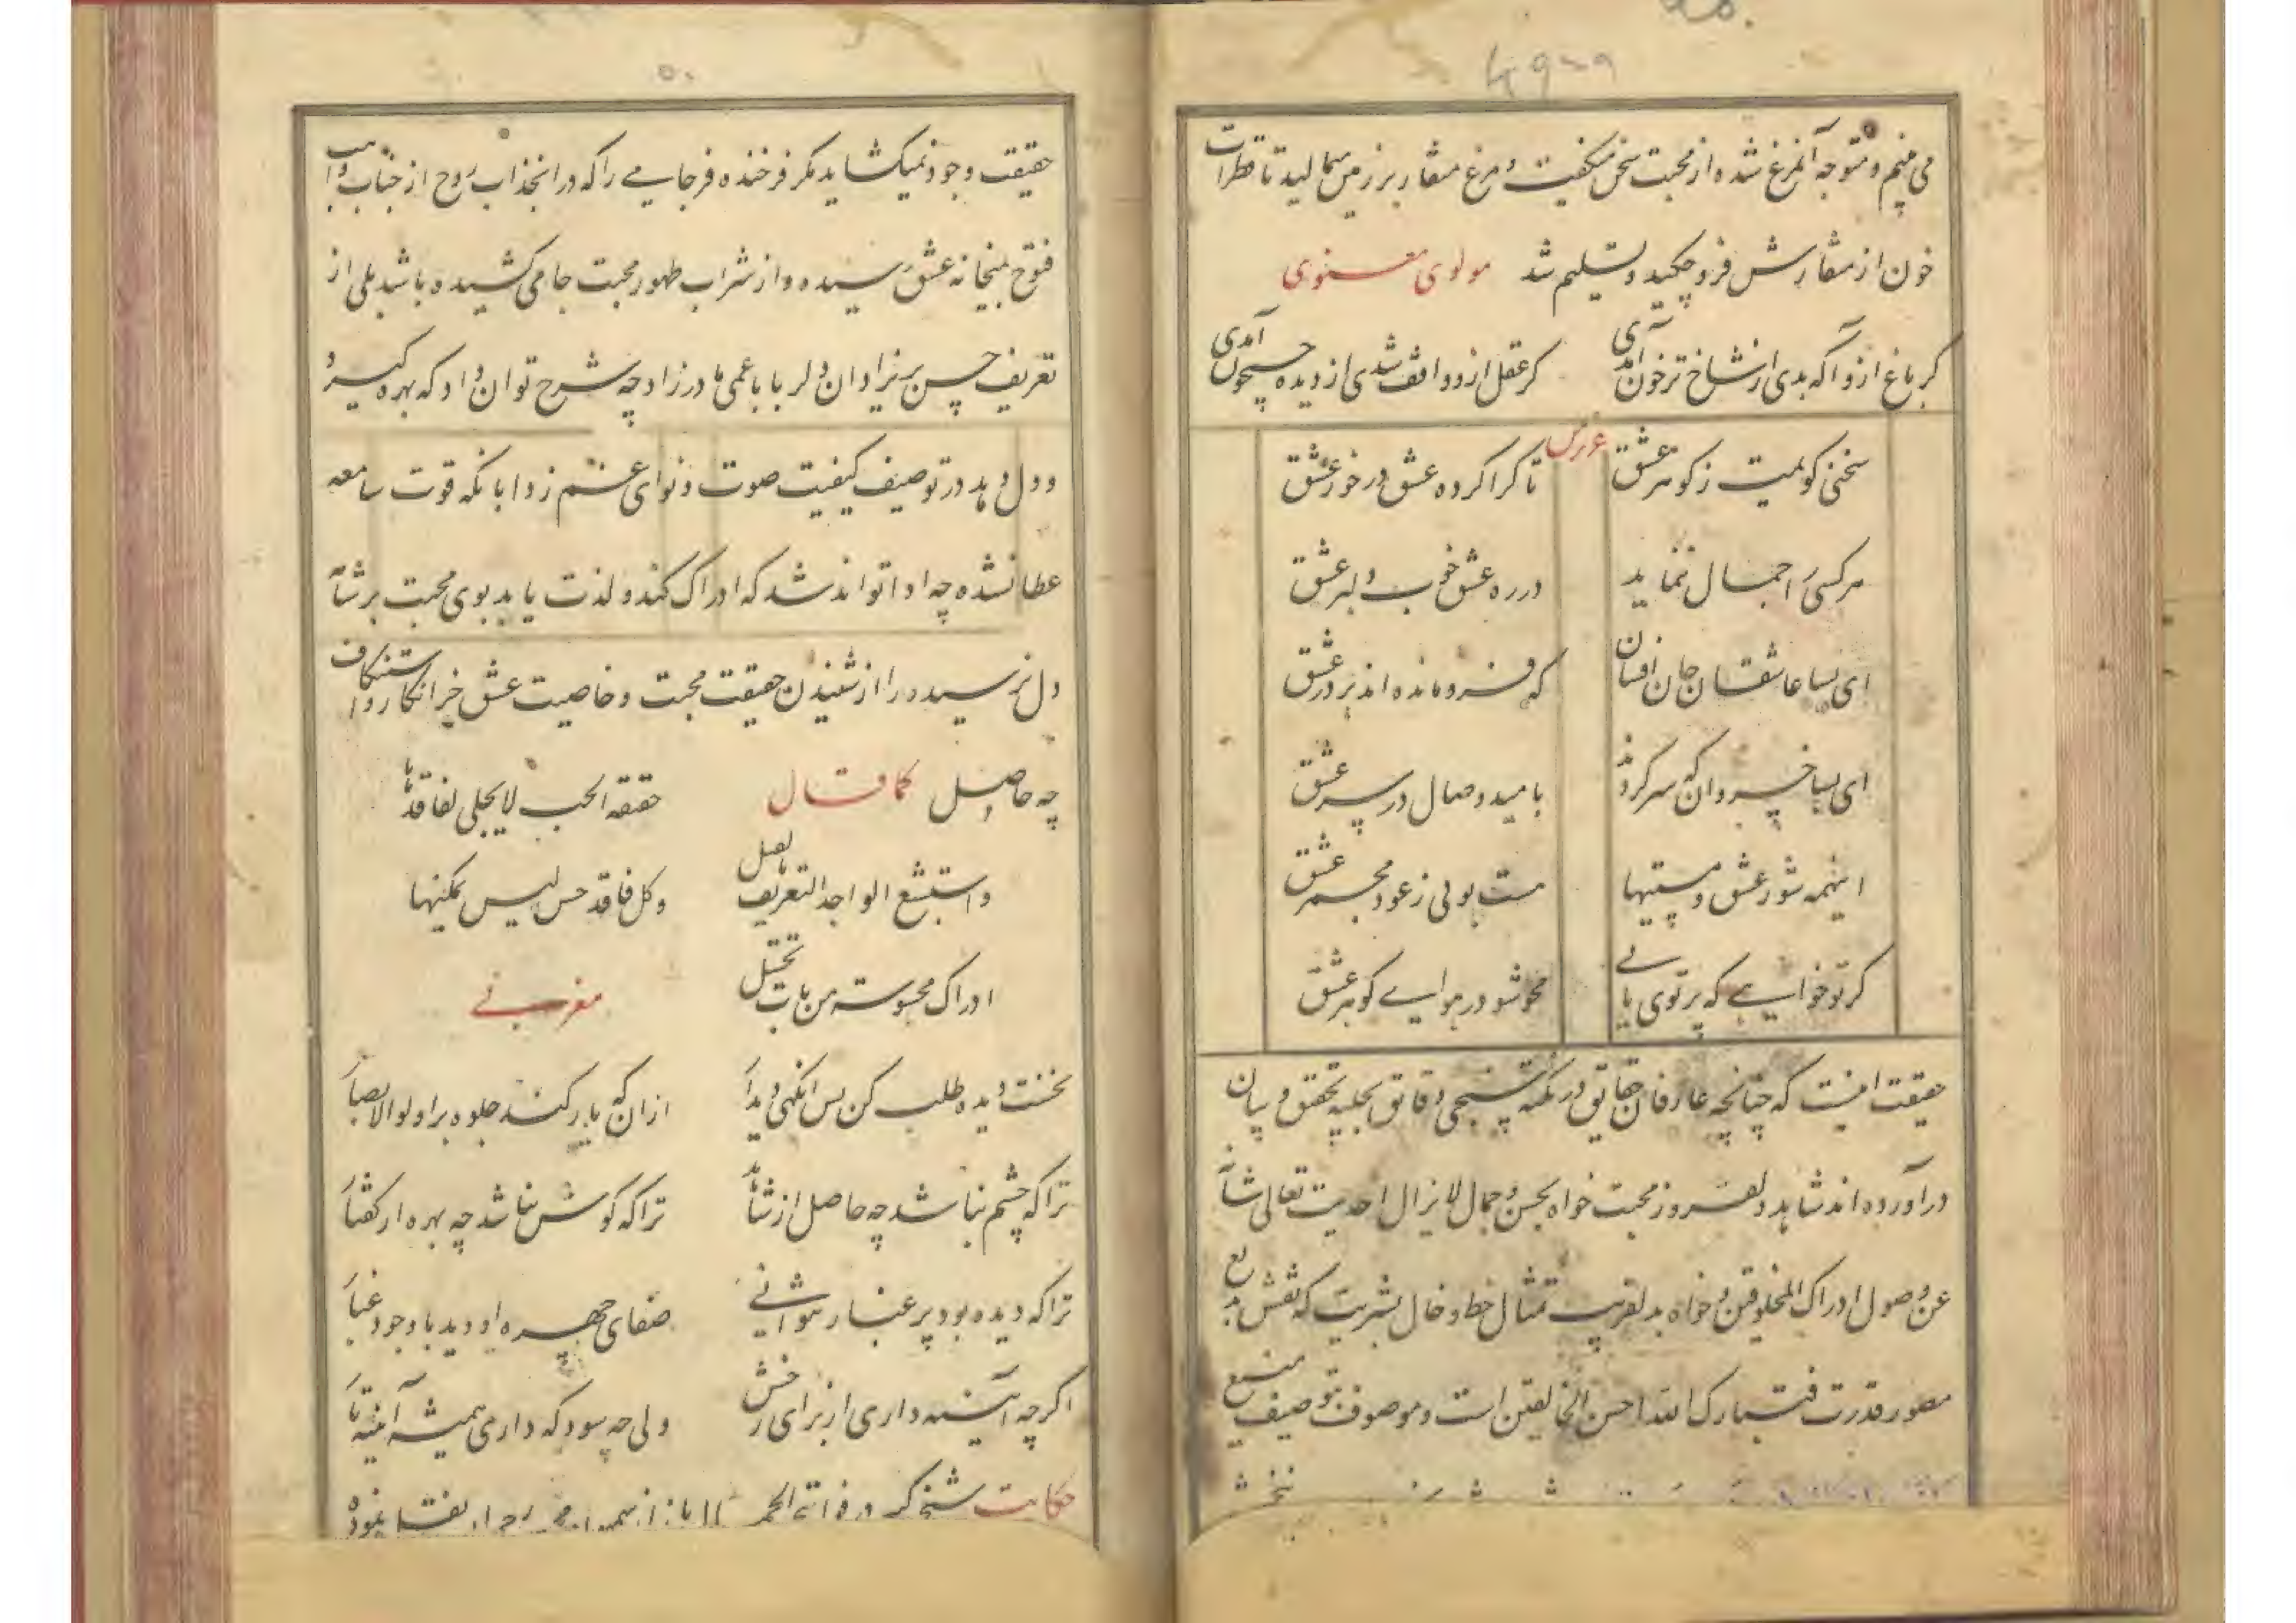 می‌بینم و متوجه آنمرغ شده از محبت سخن میکفت و مرغ منقار بر زمین میمالید تا قطرات
خون از منقارش فرو چکید و تسلیم شد مولوی معنوی
کر باغ ازو آکه بدی از شاخ تر خون آمدی کر عقل ازو واقف شدی از دیده جیحون آمدی
سخنی کویمت ز کوهر عشق تا کرا کرده عشق در خور عشق
هر کسی را جمال ننماید در ره عشق خوب دلبر عشق
ای بسا عاشقان جان افشان که فرو مانده‌اند بر در عشق
ای بسا خسروان که سر کردند بامید وصال در سر عشق
اینهمه شور عشق و مستیها هست بوئی ز عود مجمر عشق
کر تو خواهی که پرتوی یابی محو شو در هوای کوهر عشق
حقیقت اینست که چنانچه عارفان حقایق در نکته سنجی دقایق تحقق و بیان
در آورده‌اند شاهد دلفروز محبت خواه بحسن و جمال لایزال احدیت تعالی شانه
عن وصول ادراک المخلوقین و خواه بدلفریب تمثال خط و خال بشریت که نقش بدیع
مصور قدرت فتبارک الله احسن الخالقین است و موصوف بتوصیف منیع
۵۰
حقیقت وجود نمیکشاید مکر فرخنده فرجامی را که در انجذاب روح از جناب
فتوح بمیخانه عشق رسیده و از شراب طهور محبت جامی کشیده باشد بلی از
تعریف حسن پریزادان دلربا با عمی مادرزاد چه شرح توان داد که بهره کیرد و
و دل دهد در توصیف کیفیت صوت و نوای غم زدا بانکه قوت سامعه
عطا نشده چه ادا تواند شد که ادراک کند و لذت یابد بوی محبت بر مشام
دل نرسیده را از شنیدن حقیقت محبت و خاصیت عشق جز انکار و استنکاف
چه حاصل کما قال حقیقه الحب لا یجلی لفاقدها
و استبشع الواجد التعریف وکل فاقد حس لیس یمکنها
ادراک محسوسة من بات مغربی
نخست دیده طلب کن پس انکهی دیدار ازان که یار کند جلوه بر اولو الابصار
ترا که چشم نباشد چه حاصل از شاهد ترا که کوش نباشد چه بهره از کفتار
ترا که دیده بود پر غبار نتوانی صفای چهره او دید با وجود غبار
اکرچه آینه داری از برای رخش ولی چه سود که داری همیشه آینه تار
حکایت شیخ